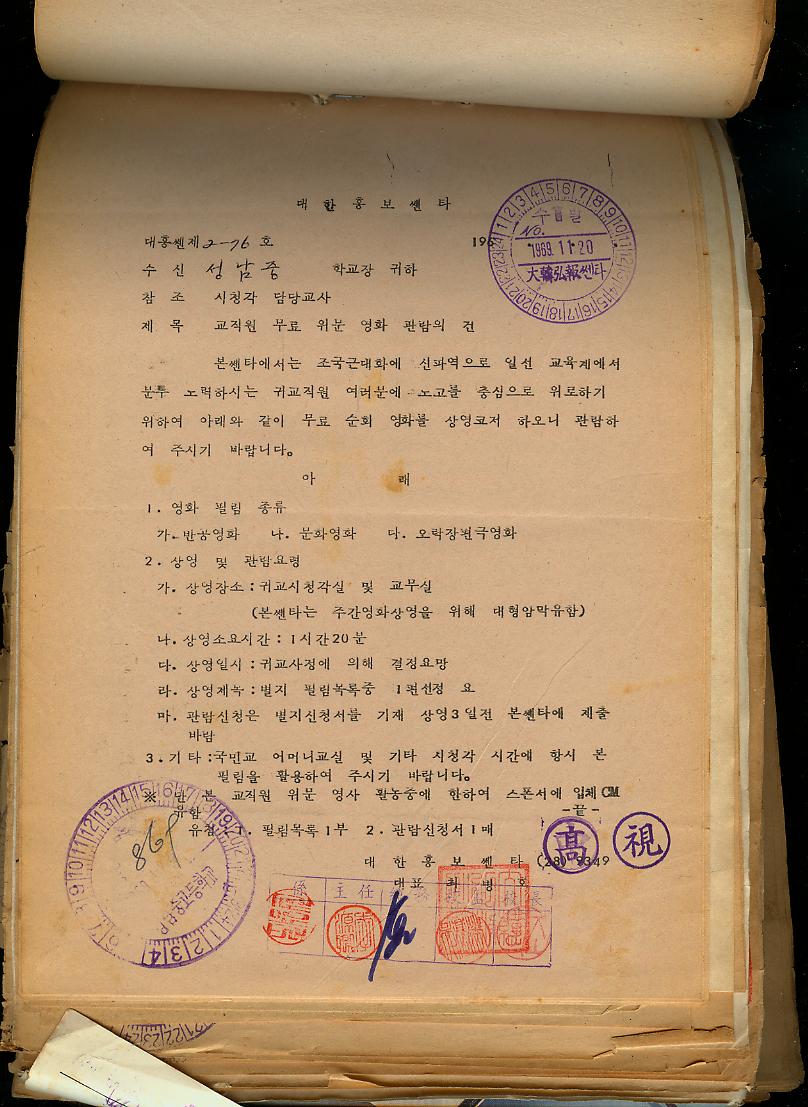 대한홍보쎈타
대홍쎈제 2-76 호
196
수신 성남중 학교장 귀하
참조 시청각 담당교사
제목 교직원 무료 위문 영화 관람의 건
수 일
No.
1969. 11. 20
大韓弘報쎈타
본쎈타에서는 조국근대화에 신파역으로 일선 교육계에서
분투 노력하시는 귀교직원 여러분에 노고를 충심으로 위로하기
위하여 아래와 같이 무료 순회 영화를 상영코저 하오니 관람하
여 주시기 바랍니다。
아 래
1. 영화 필림 종류
가. 반공영화 나. 문화영화 다. 오락장편극영화
2. 상영 및 관람요령
가. 상영장소 : 귀교시청각실 및 교무실
(본쎈타는 주간영화상영을 위해 대형암막유함)
나. 상영소요시간 : 1시간20분
다. 상영일시 : 귀교사정에 의해 결정요망
라. 상영제목 : 별지 필림목록중 1편선정 요
마. 관람신청은 별지신청서를 기재 상영3일전 본쎈타에 제출
바람
3. 기타 : 국민교 어머니교실 및 기타 시청각 시간에 항시 본
필림을 활용하여 주시기 바랍니다。
※ 단 본 교직원 위문 영사 활동중에 한하여 스폰서에 입체 CM
유함 -끝-
유첨 1. 필림목록 1부 2. 관람신청서 1매
高 視
대한홍보쎈타 (28) 9349
대표 최병호
868
係 主任 長